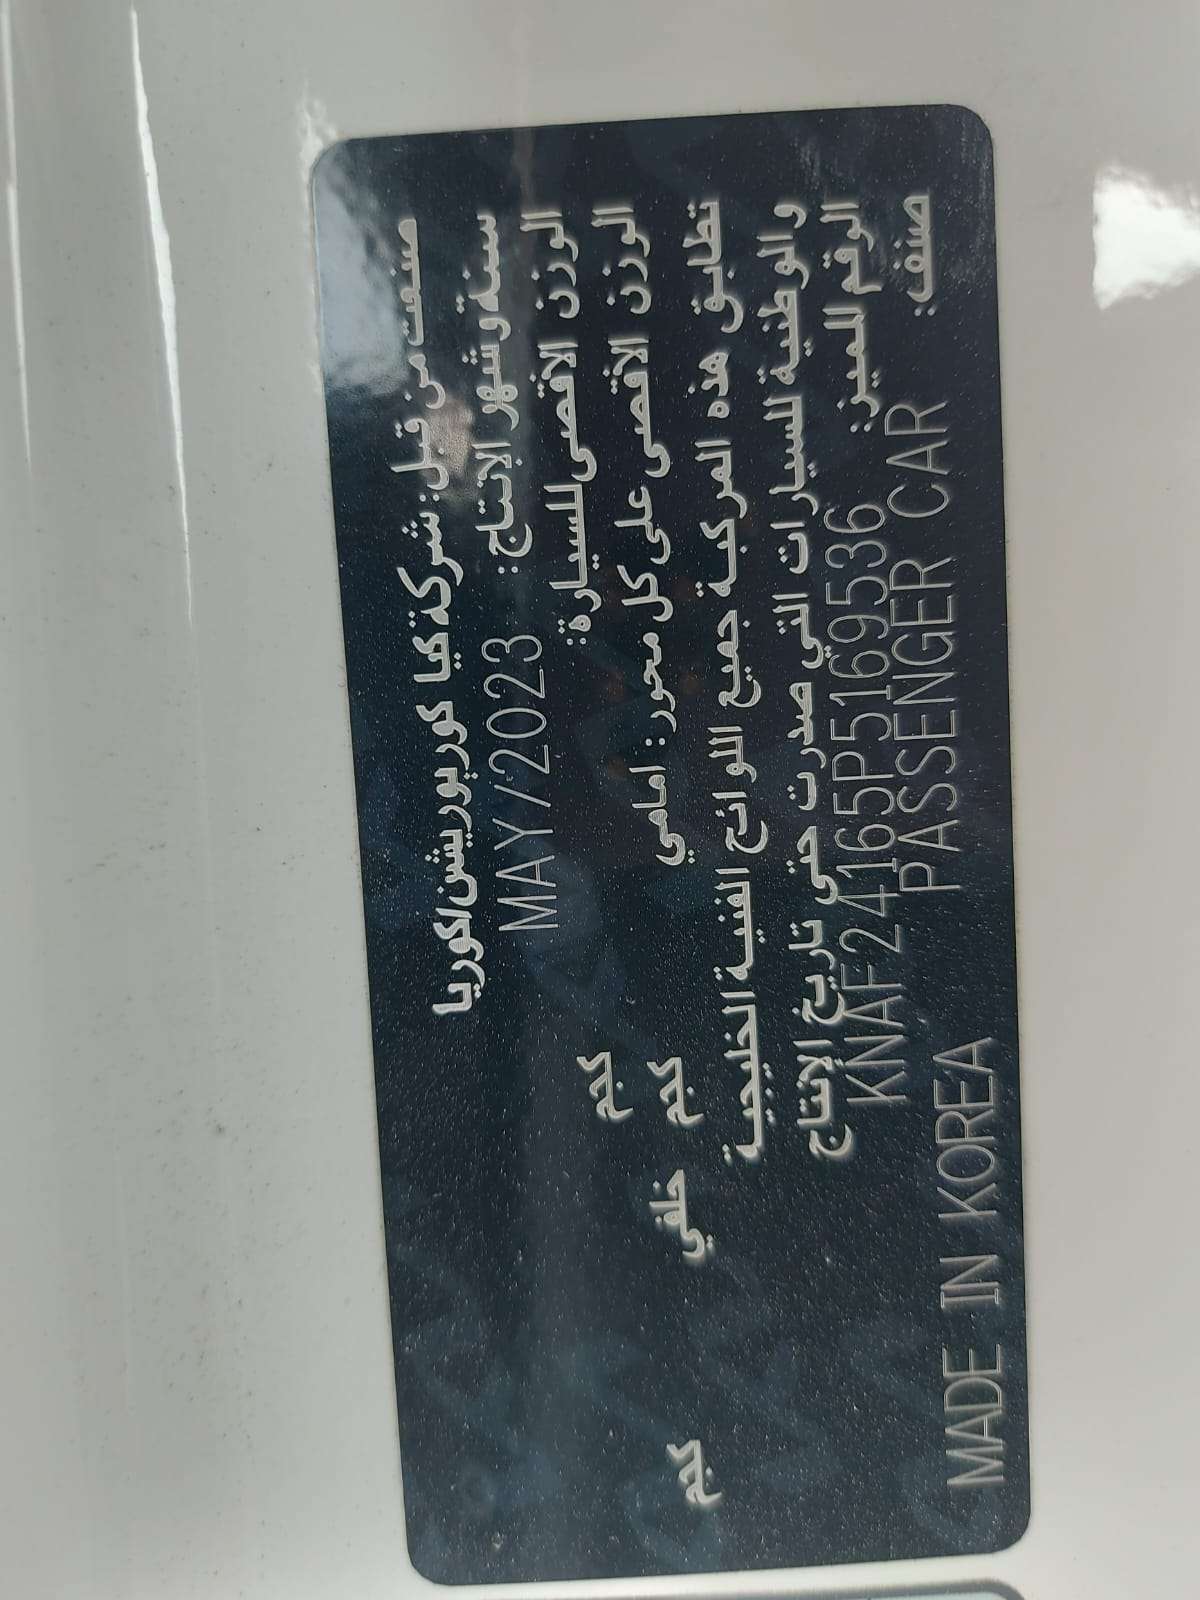 صنعت من قبل: شركة كيا كوربوريشن/كوريا
سنة وشهر الإنتاج: MAY/2023
الوزن الاقصى للسيارة: كجم
الوزن الاقصى على كل محور: امامي كجم خلفي كجم
تطابق هذه المركبة جميع اللوائح الفنية الخليجية
والوطنية للسيارات التي صدرت حتى تاريخ الإنتاج
الرقم المميز: KNAF24165P5169536
صنف: PASSENGER CAR MADE IN KOREA